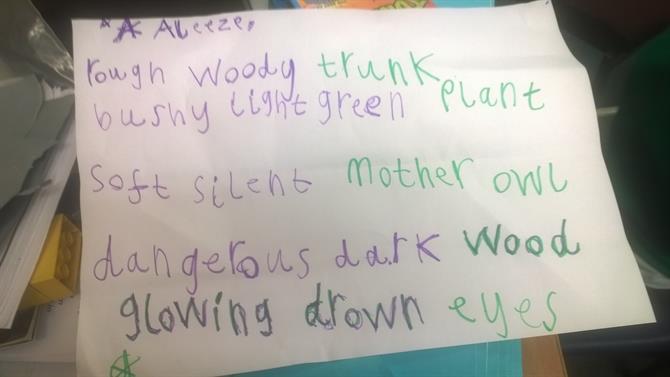 Aleeze.
rough woody trunk
bushy light green plant
soft silent mother owl
dangerous dark wood
glowing drown eyes